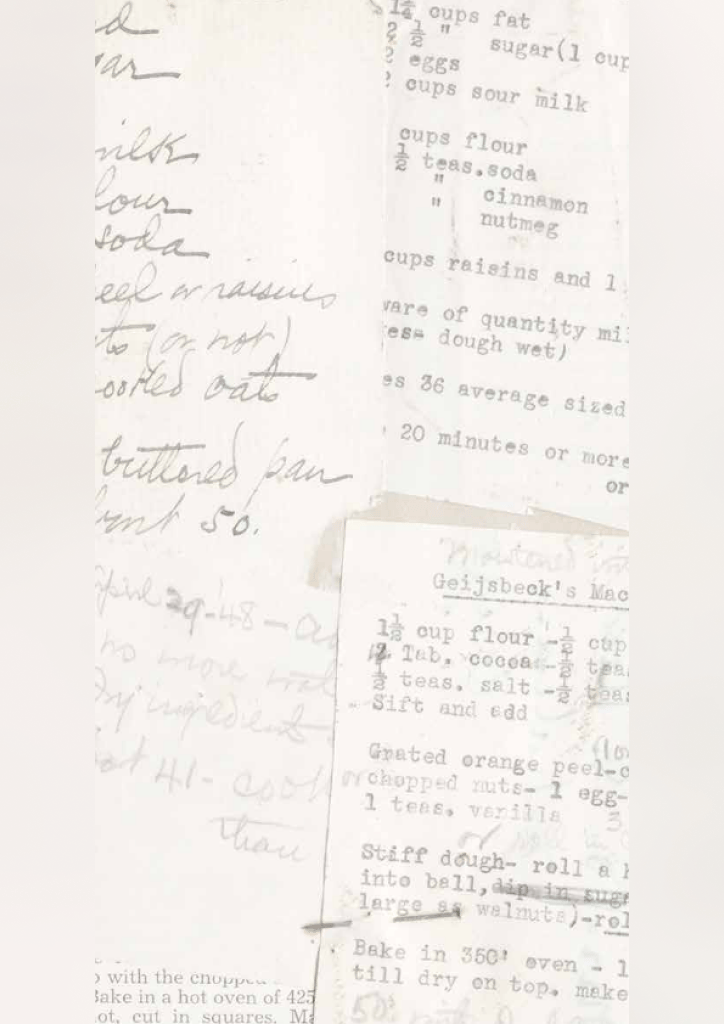 d
ar
milk
flour
soda
peel or raisins
ts (or not)
oats
buttered pan
50.
1¼ cups fat
2 ½ " sugar(1 cup
2 eggs
2 cups sour milk
cups flour
½ teas.soda
" cinnamon
" nutmeg
cups raisins and 1
ware of quantity mi
es- dough wet)
es 36 average sized
20 minutes or more
or
April 29-48-
no more
dry ingredient
41- cook
than
Geijsbeck's Mac
1½ cup flour -½ cup
2 Tab. cocoa-½ teas
½ teas. salt -½ teas
Sift and add
Grated orange peel-c
or chopped nuts- 1 egg-
1 teas. vanilla 3
or
Stiff dough- roll a h
into ball,dip in suga
large as walnuts)-rol
Bake in 350° oven - 1
till dry on top. make
50
with the chopped
Bake in a hot oven of 425
ot, cut in squares. Ma